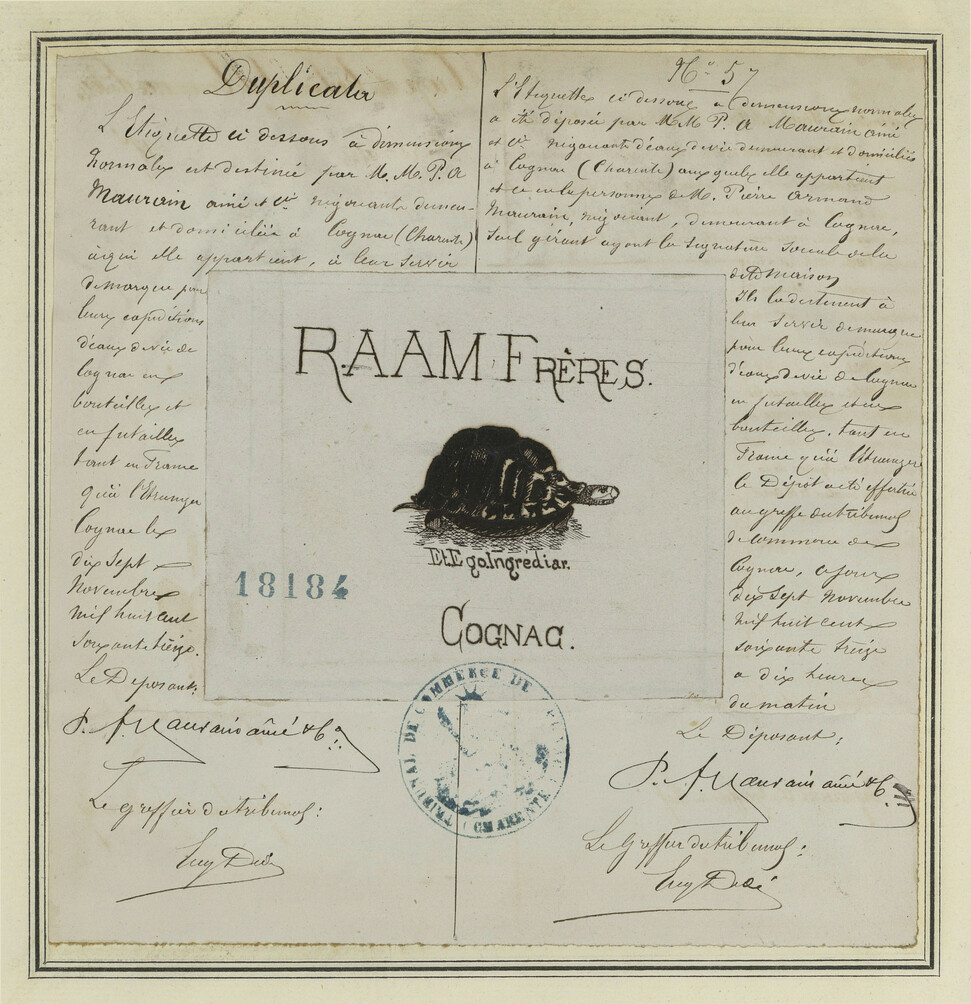 Duplicata
L'Etiquette ci dessous à dimensions
Normales est destinée par M.M. P. A
Maurain ainé et Cie négociants demeu-
rant et domiciliés à Cognac (Charente)
à qui elle appartient, à leur servir
de marque pour
leurs expéditions
d'eaux de vie de
Cognac en
bouteilles et
en futailles
tant en France
qu'à l'Etranger
Cognac le
dix Sept
Novembre
mil huit cent
soixante treize.
Le Déposant.
P. A. Maurain ainé & Cie
Le greffier du tribunal:
No 57
L'Etiquette ci dessous à dimensions normales
a été déposée par M.M. P. A Maurain ainé
et Cie négociants d'eaux de vie demeurant et domiciliés
à Cognac (Charente) auxquels elle appartient
et ce en la personne de M. Pierre Armand
Maurain, négociant, demeurant à Cognac,
seul gérant ayant la signature sociale de la
dite maison
Ils la destinent à
leur servir de marque
pour leurs expéditions
d'eaux de vie de Cognac
en futailles et en
bouteilles, tant en
France qu'à l'étranger
le Dépôt a été effectué
au greffe du tribunal
de Commerce de
Cognac, ce jour
dix sept Novembre
mil huit cent
soixante treize
a dix heures
du matin
Le Déposant:
P. A. Maurain ainé & Cie
Le Greffier du tribunal:
RAAM FRÈRES.
Et Ego Ingrédiar.
18184
COGNAC.
TRIBUNAL DE COMMERCE DE
CHARENTE